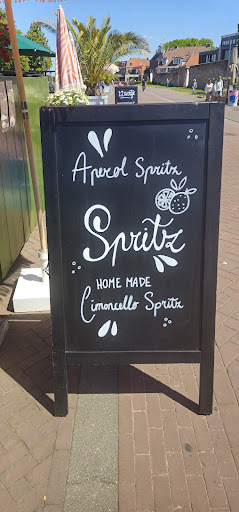 Aperol Spritz
Spritz
HOME MADE
Limoncello Spritz